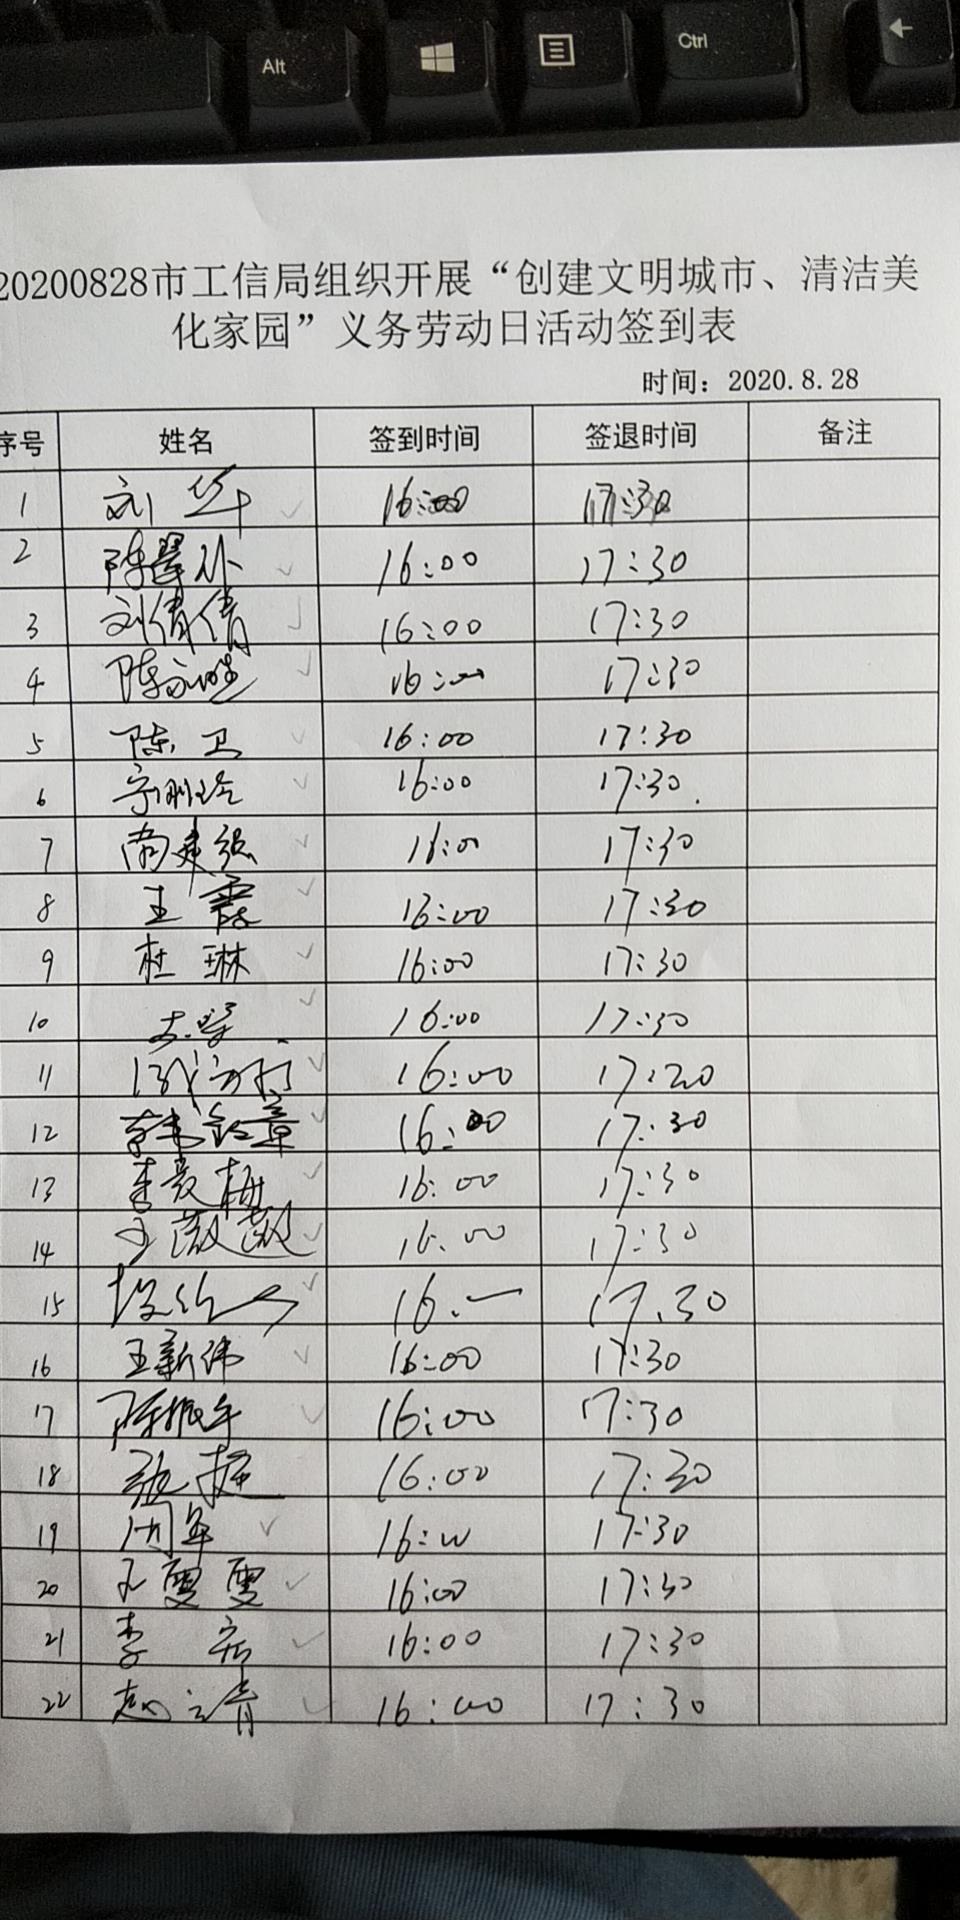 Alt
Ctrl
20200828市工信局组织开展“创建文明城市、清洁美
化家园”义务劳动日活动签到表
时间：2020.8.28
序号 姓名 签到时间 签退时间 备注
1 刘华 16:00 17:30
2 陈翠 16:00 17:30
3 刘倩倩 16:00 17:30
4 陈 16:00 17:30
5 陈卫 16:00 17:30
6 16:00 17:30
7 尚建强 16:00 17:30
8 王霞 16:00 17:30
9 杜琳 16:00 17:30
10 16:00 17:30
11 16:00 17:20
12 16:00 17:30
13 李爱梅 16:00 17:30
14 王薇薇 16:00 17:30
15 16:— 17:30
16 王新伟 16:00 17:30
17 陈振午 16:00 17:30
18 张捷 16:00 17:30
19 周军 16:00 17:30
20 王雯雯 16:00 17:30
21 李宏 16:00 17:30
22 赵青 16:00 17:30